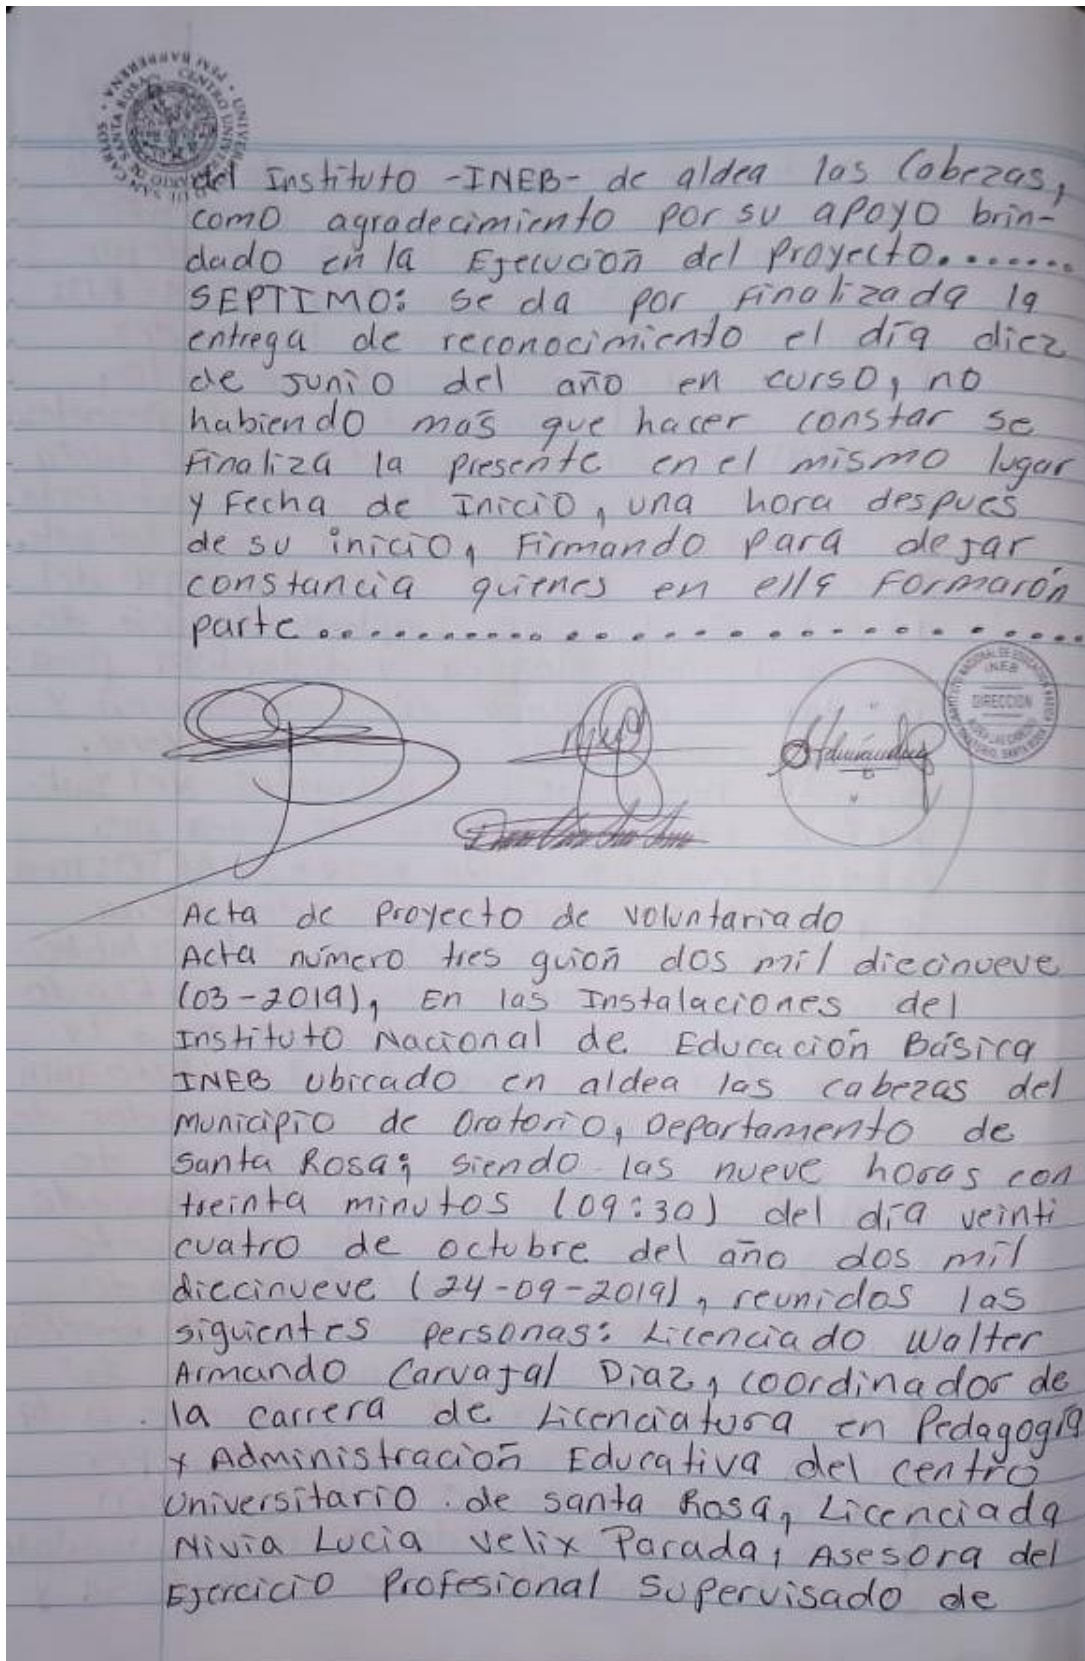 del Instituto -INEB- de aldea las Cabezas,
como agradecimiento por su apoyo brin-
dado en la Ejecución del proyecto.......
SEPTIMO: se da por Finalizada la
entrega de reconocimiento el día diez
de Junio del año en curso, no
habiendo más que hacer constar se
Finaliza la presente en el mismo lugar
y Fecha de Inicio, una hora después
de su inicio, Firmando para dejar
constancia quienes en ella Formarón
parte..............................
INEB
DIRECCION
Acta de Proyecto de voluntariado
Acta número tres guión dos mil diecinueve
(03-2019), En las Instalaciones del
Instituto Nacional de Educación Básica
INEB ubicado en aldea las cabezas del
Municipio de Oratorio, Departamento de
Santa Rosa; siendo las nueve horas con
treinta minutos (09:30) del día veinti
cuatro de octubre del año dos mil
diecinueve (24-09-2019), reunidos las
siguientes personas: Licenciado Walter
Armando Carvajal Diaz, coordinador de
la carrera de Licenciatura en Pedagogía
y Administración Educativa del centro
Universitario de santa Rosa, Licenciada
Nivia Lucia Velix Parada, Asesora del
Ejercicio Profesional Supervisado de